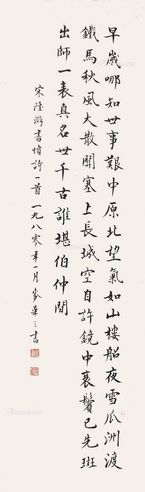 早歲哪知世事艱中原北望氣如山樓船夜雪瓜洲渡
鐵馬秋風大散關塞上長城空自許鏡中衰鬢已先斑
出師一表真名世千古誰堪伯仲間
宋陸游書憤詩一首一九八零年一月麥華三書